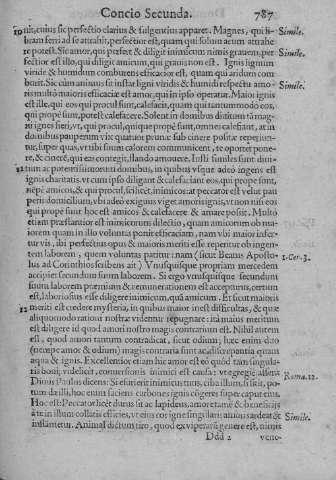 Concio Secunda. 787
10 nis, cuius sic perfectio clarius & fulgentius apparet. Magnes, qui li- Simile.
bram ferri ad se attrahit, perfectior est, quam qui solum acum attrahe
re potest. Sic amor, qui præfert & diligit inimicum nimis gravem, per- Simile.
fectior est illo, qui diligit amicum, qui gravis non est. Ignis lignum
viride & humidum comburens efficacior est, quam qui aridum com-
burit. Sic cum animus sit instar ligni viridis & humidi respectu amo- Simile.
ris multo maioris efficaciæ est amor, qui in ipso operatur. Maior ignis
est ille, qui eos qui procul sunt, calefacit, quam qui tantummodo eos,
qui prope sunt, potest calefacere. Solent in domibus divitum tã mag-
ni ignes fieri, vt, qui procul, quique prope sunt, omnes calefiant, at in
domibus pauperum vix quatuor prunæ sub cinere positæ reperiun-
tur, super quas, vt tibi suum calorem communicent, te oportet pone-
re, & cinerē, qui eas contegit, flando amovere. Iusti similes sunt divi-
11 tum ac potentissimorum domibus, in quibus vsque adeo ingens est
ignis charitatis, vt cum ipso diligant & calefaciant eos, qui prope sunt,
nēpe amicos, & qui procul, scilicet, inimicos: at peccator est velut pau
peris domicilium, vbi adeo exiguus viget amoris ignis, vt non nisi eos
qui prope sunt hoc est amicos & calefacere & amare possit. Multo
etiam præstantior est inimicorum dilectio, quam amicorum ob ma-
iorem quam in illo voluntas ponit efficaciam, nam vbi maior infer-
tur vis, ibi perfectius opus & maioris meriti esse reperitur ob ingen-
tem laborem, quem voluntas patitur: nam (sicut Beatus Aposto- 1. Cor. 3.
lus ad Corinthios scribens ait) Vnusquisque propriam mercedem
accipiet secundum suum laborem. Si ergo vnusquisque secundum
suum laborem præmium & remunerationem est accepturus, certum
est, laboriosius esse diligere inimicum, quã amicum. Et sicut maioris
12 meriti est credere mysteria, in quibus maior inest difficultas, & quæ
aliquomodo rationi nostræ videntur repugnare: ita maius meritum
est diligere id quod amori nostro magis contrarium est. Nihil autem
est, quod amor tantum contradicat, sicut odium; hæc enim duo
(nempe amor & odium) magis contraria sunt ac discrepantia quam
aqua & ignis. Excellentior etiam hic amor est ob quid tam singula-
ris boni, videlicet, conversionis inimici est causa: vt egregiè asserit Roma. 12.
Divus Paulus dicens: Si esurierit inimicus tuus, ciba illum, si sitit, po-
tum da illi, hoc enim faciens carbones ignis cōgeres super caput eius.
Hoc est: Peccator licèt durus sit ac lapideus, amore tamē & beneficijs
à te in illum collatis efficies, vt eius cor igne singularis amoris ardeat & Simile.
inflammetur. Animal dictum tiro, quod ex viperarū genere est, nimis
Ddd 2 veno-